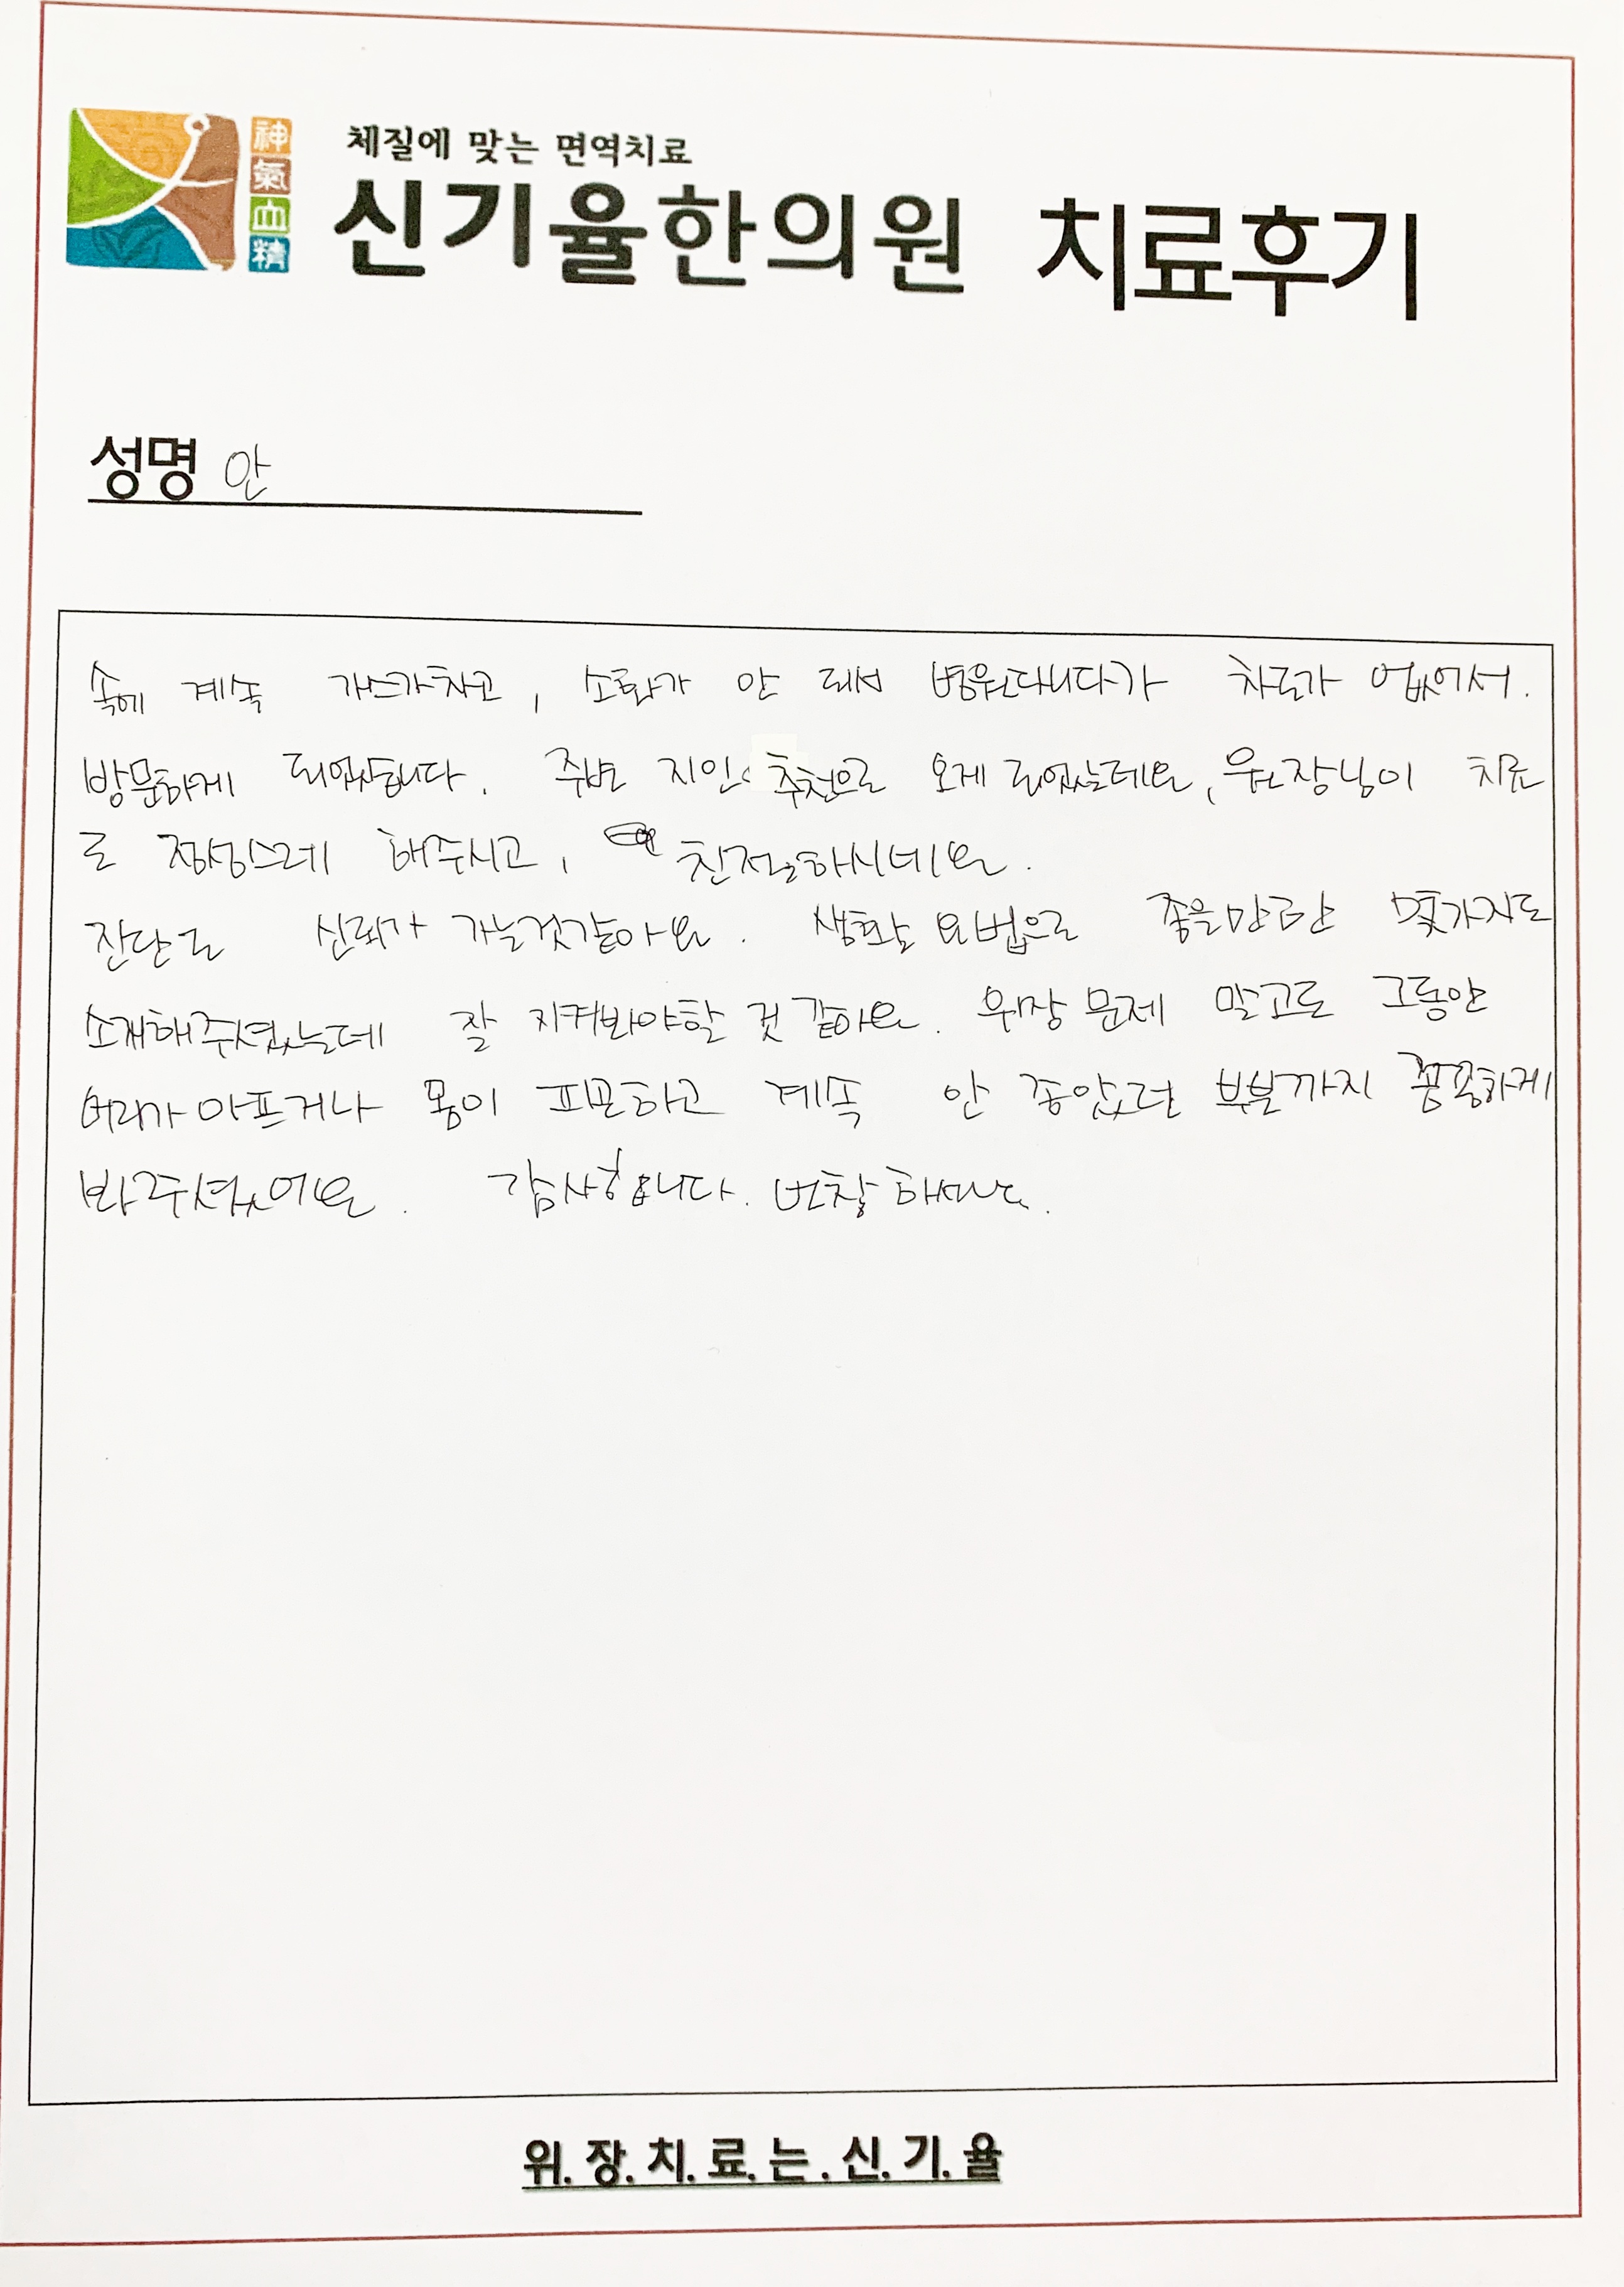 神
氣
血
精
체질에 맞는 면역치료
신기율한의원 치료후기
성명 안
속에 계속 가스가차고, 소화가 안 되서 병원다니다가 차도가 없어서.
방문하게 되었습니다. 주변 지인 추천으로 오게 되었는데요, 원장님이 치료
도 정성스레 해주시고, 친절하시네요.
진단도 신뢰가 가는것같아요. 생활 요법으로 좋을만한 몇가지도
소개해주셨는데 잘 지켜봐야할 것 같아요. 위장 문제 말고도 그동안
머리가 아프거나 몸이 피곤하고 계속 안 좋았던 부분까지 꼼꼼하게
봐주셨어요. 감사합니다. 번창하세요.
위.장.치.료.는.신.기.율